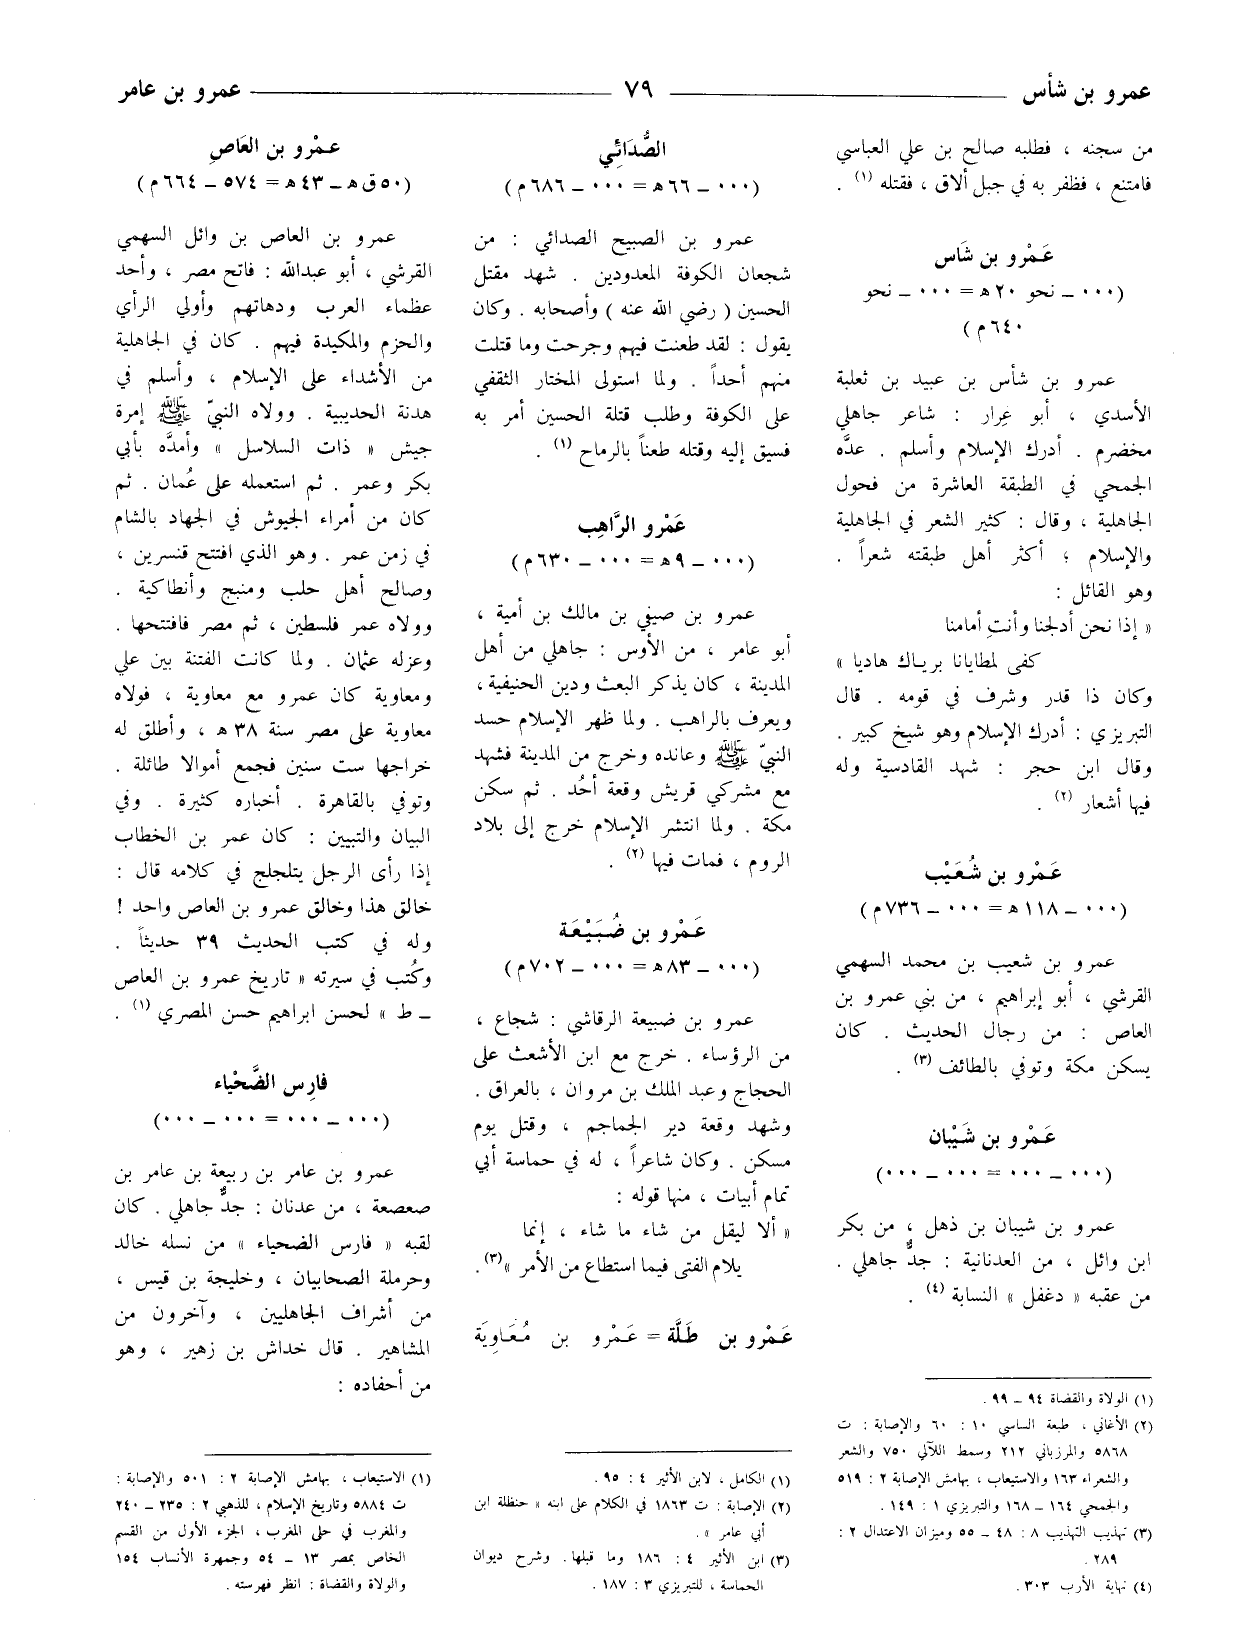 عمرو بن شأس ٧٩ عمرو بن عامر
من سجنه ، فطلبه صالح بن علي العباسي
فامتنع ، فظفر به في جبل ألاق ، فقتله (١) .
عَمْرو بن شَاس
(٠٠٠ ــ نحو ٢٠ هـ = ٠٠٠ ــ نحو
٦٤٠ م)
عمرو بن شأس بن عبيد بن ثعلبة
الأسدي ، أبو عِرار : شاعر جاهلي
مخضرم . أدرك الإسلام وأسلم . عدَّه
الجمحي في الطبقة العاشرة من فحول
الجاهلية ، وقال : كثير الشعر في الجاهلية
والإسلام ؛ أكثر أهل طبقته شعراً .
وهو القائل :
« إذا نحن أدلجنا وأنتِ أمامنا
كفى لمطايانا برياك هاديا »
وكان ذا قدر وشرف في قومه . قال
التبريزي : أدرك الإسلام وهو شيخ كبير .
وقال ابن حجر : شهد القادسية وله
فيها أشعار (٢) .
عَمْرو بن شُعَيْب
(٠٠٠ ــ ١١٨ هـ = ٠٠٠ ــ ٧٣٦ م)
عمرو بن شعيب بن محمد السهمي
القرشي ، أبو إبراهيم ، من بني عمرو بن
العاص : من رجال الحديث . كان
يسكن مكة وتوفي بالطائف (٣) .
عَمْرو بن شَيْبان
(٠٠٠ ــ ٠٠٠ = ٠٠٠ ــ ٠٠٠)
عمرو بن شيبان بن ذهل ، من بكر
ابن وائل ، من العدنانية : جدٌّ جاهلي .
من عقبه « دغفل » النسابة (٤) .
(١) الولاة والقضاة ٩٤ ــ ٩٩ .
(٢) الأغاني ، طبعة الساسي ١٠ : ٦٠ والإصابة : ت
٥٨٦٨ والمرزباني ٢١٢ وسمط اللآلي ٧٥٠ والشعر
والشعراء ١٦٣ والاستيعاب ، بهامش الإصابة ٢ : ٥١٩
والجمحي ١٦٤ ــ ١٦٨ والتبريزي ١ : ١٤٩ .
(٣) تهذيب التهذيب ٨ : ٤٨ ــ ٥٥ وميزان الاعتدال ٢ :
٢٨٩ .
(٤) نهاية الأرب ٣٠٣ .
الصُّدَائِي
(٠٠٠ ــ ٦٦ هـ = ٠٠٠ ــ ٦٨٦ م)
عمرو بن الصبيح الصدائي : من
شجعان الكوفة المعدودين . شهد مقتل
الحسين ( رضي الله عنه ) وأصحابه . وكان
يقول : لقد طعنت فيهم وجرحت وما قتلت
منهم أحداً . ولما استولى المختار الثقفي
على الكوفة وطلب قتلة الحسين أمر به
فسيق إليه وقتله طعناً بالرماح (١) .
عَمْرو الرَّاهِب
(٠٠٠ ــ ٩ هـ = ٠٠٠ ــ ٦٣٠ م)
عمرو بن صيفي بن مالك بن أمية ،
أبو عامر ، من الأوس : جاهلي من أهل
المدينة ، كان يذكر البعث ودين الحنيفية ،
ويعرف بالراهب . ولما ظهر الإسلام حسد
النبيّ ﷺ وعانده وخرج من المدينة فشهد
مع مشركي قريش وقعة أُحُد . ثم سكن
مكة . ولما انتشر الإسلام خرج إلى بلاد
الروم ، فمات فيها (٢) .
عَمْرو بن ضُبَيْعَة
(٠٠٠ ــ ٨٣ هـ = ٠٠٠ ــ ٧٠٢ م)
عمرو بن ضبيعة الرقاشي : شجاع ،
من الرؤساء . خرج مع ابن الأشعث على
الحجاج وعبد الملك بن مروان ، بالعراق .
وشهد وقعة دير الجماجم ، وقتل يوم
مسكن . وكان شاعراً ، له في حماسة أبي
تمام أبيات ، منها قوله :
« ألا ليقل من شاء ما شاء ، إنما
يلام الفتى فيما استطاع من الأمر »(٣) .
عَمْرو بن طَلَّة = عَمْرو بن مُعَاوِيَة
(١) الكامل ، لابن الأثير ٤ : ٩٥ .
(٢) الإصابة : ت ١٨٦٣ في الكلام على ابنه « حنظلة ابن
أبي عامر » .
(٣) ابن الأثير ٤ : ١٨٦ وما قبلها. وشرح ديوان
الحماسة ، للتبريزي ٣ : ١٨٧ .
عمْرو بن العَاصِ
(٥٠ ق هـ ــ ٤٣ هـ = ٥٧٤ ــ ٦٦٤ م)
عمرو بن العاص بن وائل السهمي
القرشي ، أبو عبدالله : فاتح مصر ، وأحد
عظماء العرب ودهاتهم وأولي الرأي
والحزم والمكيدة فيهم . كان في الجاهلية
من الأشداء على الإسلام ، وأسلم في
هدنة الحديبية . وولاه النبيّ ﷺ إمرة
جيش « ذات السلاسل » وأمدَّه بأبي
بكر وعمر . ثم استعمله على عُمان . ثم
كان من أمراء الجيوش في الجهاد بالشام
في زمن عمر . وهو الذي افتتح قنسرين ،
وصالح أهل حلب ومنبج وأنطاكية .
وولاه عمر فلسطين ، ثم مصر فافتتحها .
وعزله عثمان . ولما كانت الفتنة بين علي
ومعاوية كان عمرو مع معاوية ، فولاه
معاوية على مصر سنة ٣٨ هـ ، وأطلق له
خراجها ست سنين فجمع أموالا طائلة .
وتوفي بالقاهرة . أخباره كثيرة . وفي
البيان والتبيين : كان عمر بن الخطاب
إذا رأى الرجل يتلجلج في كلامه قال :
خالق هذا وخالق عمرو بن العاص واحد !
وله في كتب الحديث ٣٩ حديثاً .
وكُتب في سيرته « تاريخ عمرو بن العاص
ــ ط » لحسن ابراهيم حسن المصري (١) .
فارِس الضَّحْياء
(٠٠٠ ــ ٠٠٠ = ٠٠٠ ــ ٠٠٠)
عمرو بن عامر بن ربيعة بن عامر بن
صعصعة ، من عدنان : جدٌّ جاهلي . كان
لقبه « فارس الضحياء » من نسله خالد
وحرملة الصحابيان ، وخليجة بن قيس ،
من أشراف الجاهليين ، وآخرون من
المشاهير . قال خداش بن زهير ، وهو
من أحفاده :
(١) الاستيعاب ، بهامش الإصابة ٢ : ٥٠١ والإصابة :
ت ٥٨٨٤ وتاريخ الإسلام ، للذهبي ٢ : ٢٣٥ ــ ٢٤٠
والمغرب في حلى المغرب ، الجزء الأول من القسم
الخاص بمصر ١٣ ــ ٥٤ وجمهرة الأنساب ١٥٤
والولاة والقضاة : انظر فهرسته .